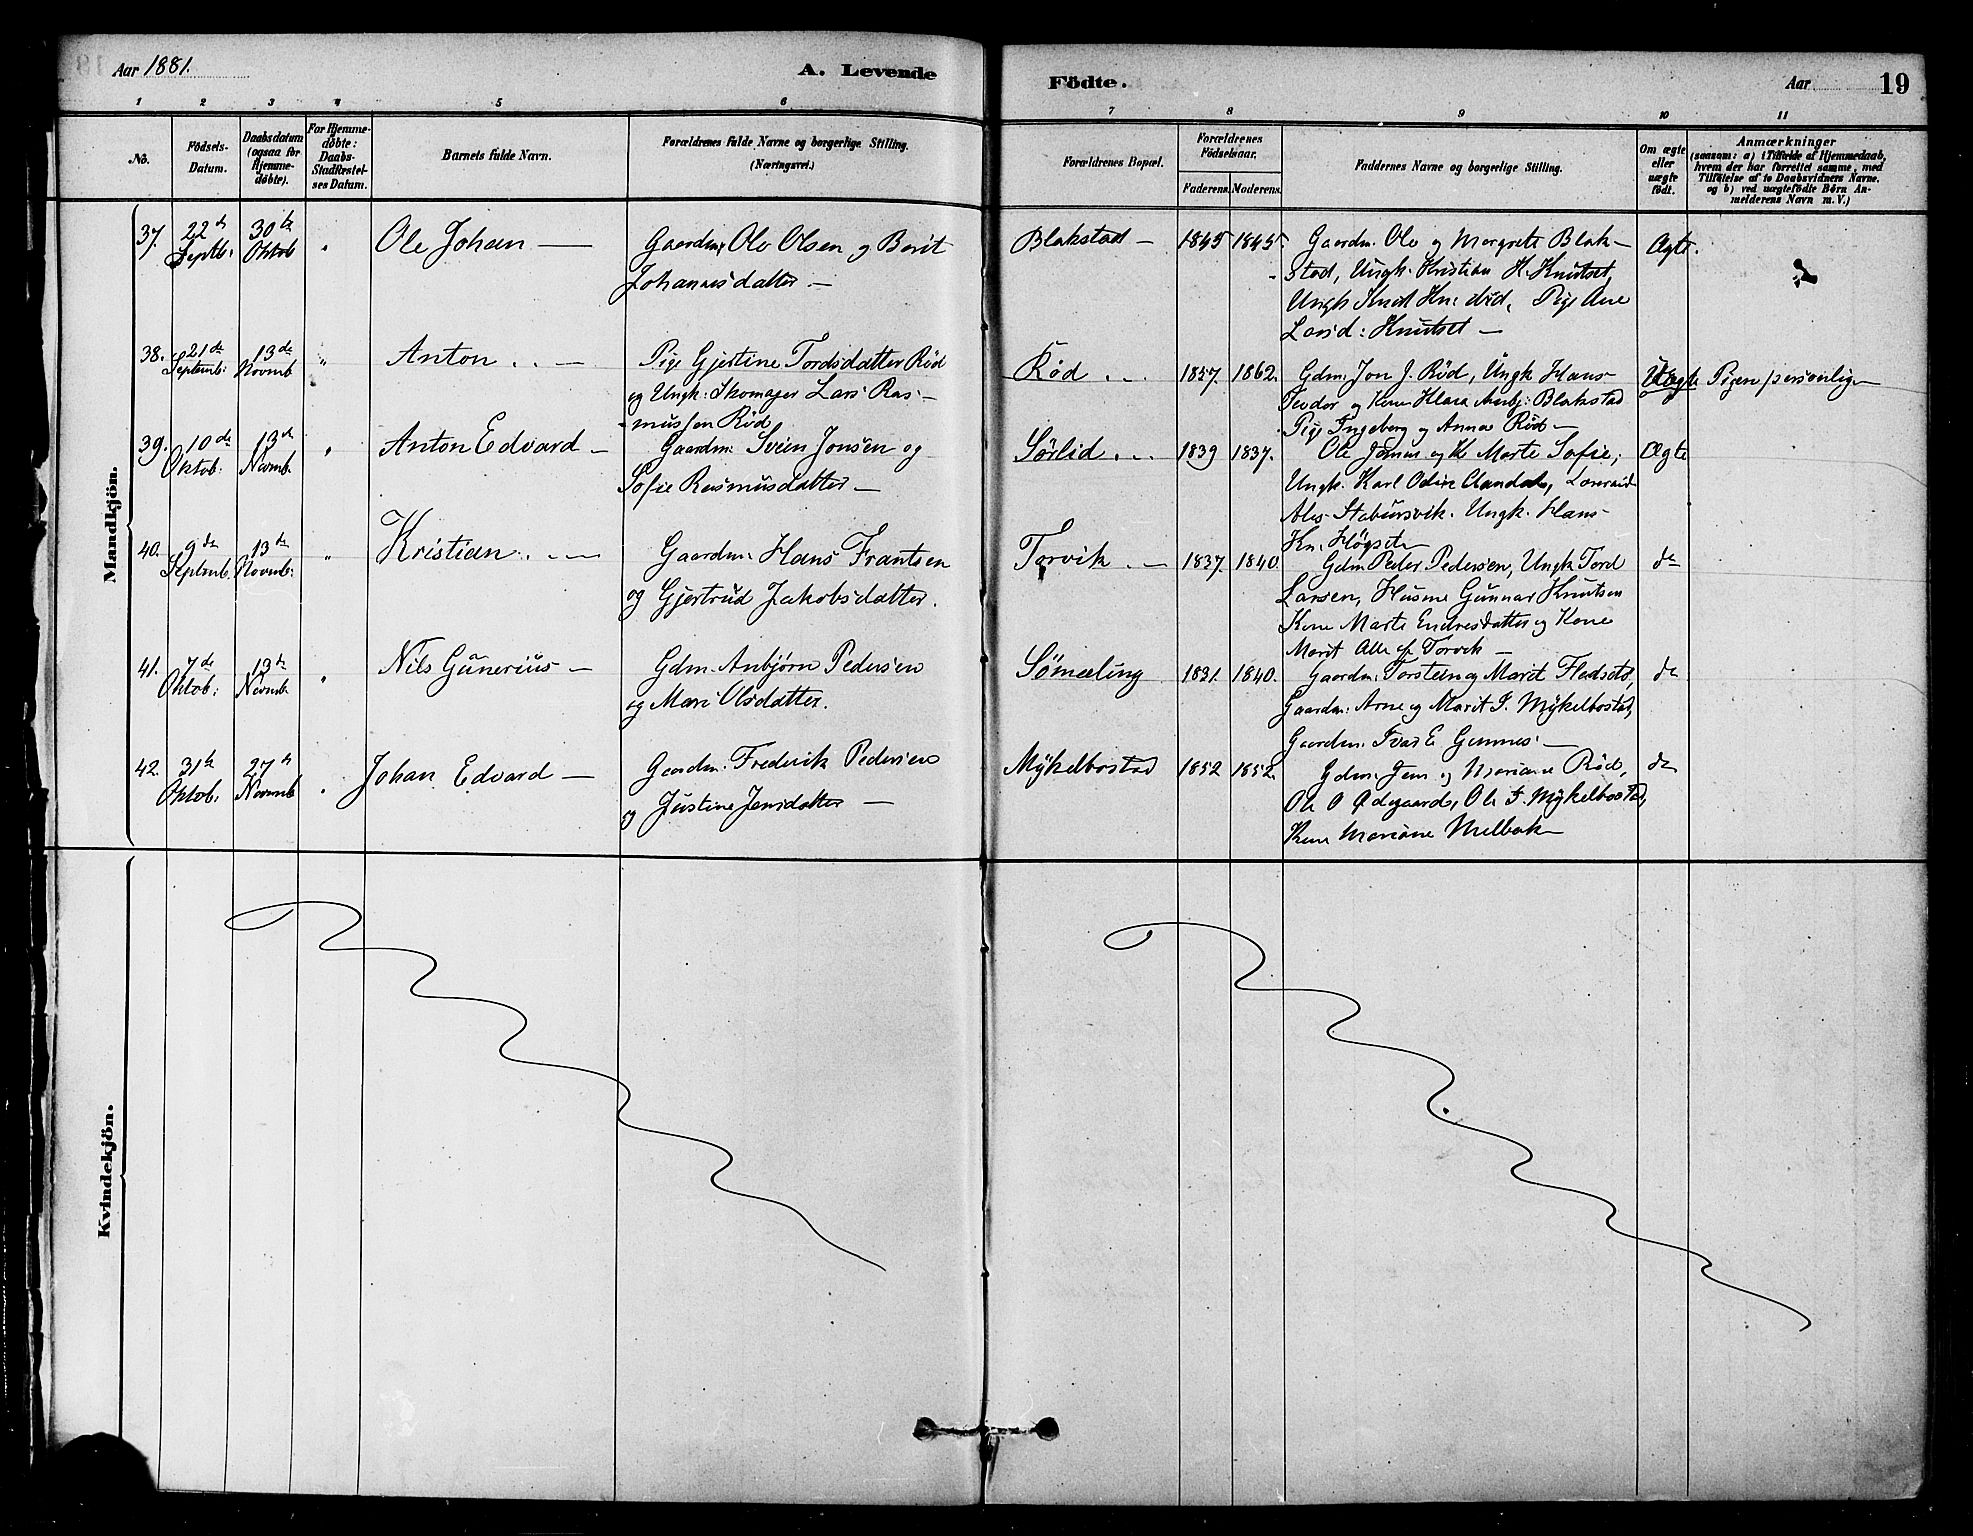 Aar 1881.
A. Levende
Födte.
Aar
19
1 2 3 4 5 6 7 8 9 10 11
No.
Födsels-
Datum.
Daabsdatum
(ogsaa for
Hjemme-
döbte).
For Hjemme-
döbte:
Daabs-
Stadfæstel-
ses Datum.
Barnets fulde Navn.
Forældrenes fulde Navne og borgerlige Stilling.
(Næringsvei.)
Forældrenes Bopæl.
Forældrenes
Födselsaar.
Faderens. Moderens.
Faddernes Navne og borgerlige Stilling.
Om ægte
eller
uægte
födt.
Anmærkninger
(saasom: a) i Tilfælde af Hjemmedaab,
hvem der har forrettet samme, med
Tilföielse af to Daabsvidners Navne,
og b) ved uægtefödte Börn An-
melderens Navn m. V.)
Mandkjön.
37.
22de
Septb:
30te
Oktob
"
Ole Johan —
Gaardm: Ole Olsen og Berit
Johannesdatter —
Blakstad —
1845
1845.
Gaardm. Ole og Margrete Blak-
stad, Ungk. Kristian K. Knutset,
Ungk Knut Pige Ane
Larsd: Knutset —
Ægte.
38.
21de
Septemb:
13de
Novmb
"
Anton . . —
Pige Gjertine Tordsdatter Röd
og Ungk: Skomager Lars Ras-
mussen Röd
Röd . . .
1857.
1862.
Gdm: Jon J. Röd, Ungk Hans
Teodor og Kone Blakstad
Pige Ingeborg og Anna Röd —
Uægte
Pigen personlig
39.
10de
Oktob:
13de
Novmb.
"
Anton Edvard —
Gaardm: Svein Jonsen og
Sofie Rasmusdatter —
Sörlid . . .
1839
1837.
Ole og K. Marte Sofie,
Ungk. Karl Odin Aandal,
Stabursvik. Ungk. Hans
Kn. Högset
Ægte
40.
9de
Septemb.
13de
Novmb:
"
Kristian . . —
Gaardm: Hans Frantsen
og Gjertrud Jakobsdatter.
Torvik . —
1837.
1840
Gdm Peder Pedersen, Ungk Tord
Larsen, Husmd Gunnar Knutsen
Kone Marte Endresdatter og Kone
Marit Alle af Torvik —
do
41.
7de
Oktob:
13de
Novmb
"
Nils Gunerius —
Gdm. Anbjörn Pedersen
og Mari Olsdatter.
Sömæling
1831.
1840.
Gaardm: Torstein og Marit Fladset,
Gaardm: Arne og Marit I. Mykelbostad,
Gaardm. Ivar E. Gumnes —
do
42.
31te
Oktob:
27de
Novmb
"
Johan Edvard —
Gaardm: Frederik Pedersen
og Justine Jensdatter —
Mykelbostad
1852
1852.
Gdm: Jens og Mariane Röd,
Ole O Ödegaard, Ole I. Mykelbostad,
Kone Mariane Melbak
do
Kvindekjön.